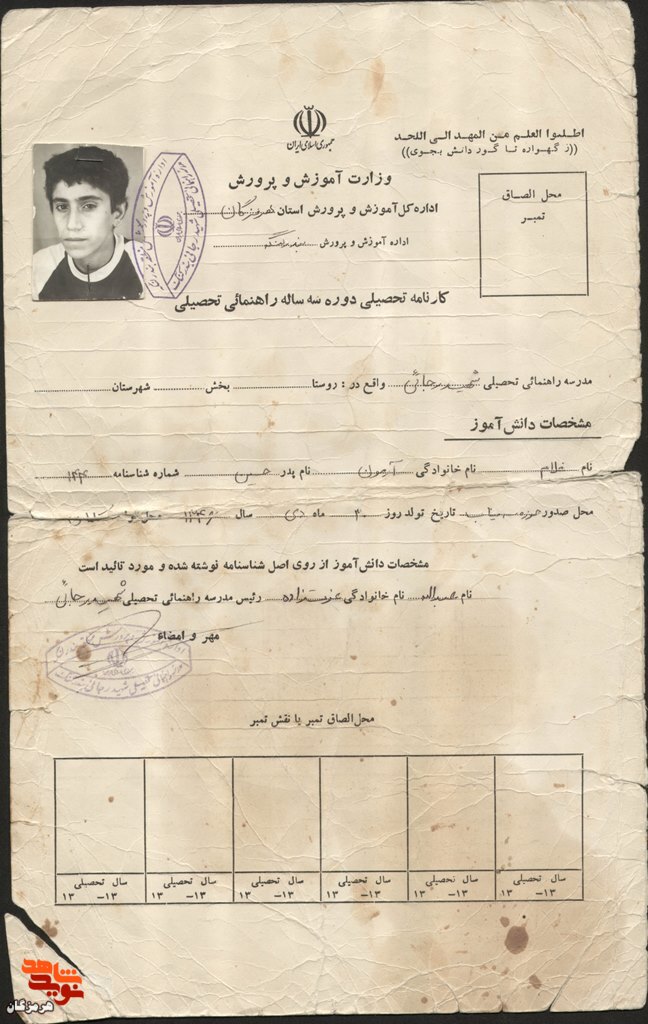 جمهوری اسلامی ایران
اطلبوا العلم من المهد الی اللحد
((ز گهواره تا گور دانش بجوی))
وزارت آموزش و پرورش
اداره کل آموزش و پرورش استان هرمزگان
اداره آموزش و پرورش
محل الصاق
تمبر
کارنامه تحصیلی دوره سه ساله راهنمائی تحصیلی
مدرسه راهنمائی تحصیلی شهید رجائی واقع در : روستا بخش شهرستان
مشخصات دانش آموز
نام غلام نام خانوادگی آرمون نام پدر حسین شماره شناسنامه ۱۴۴
محل صدور تاریخ تولد روز ۳۰ ماه دی سال ۱۳۴۶ محل تولد
مشخصات دانش آموز از روی اصل شناسنامه نوشته شده و مورد تائید است
نام عبدالله نام خانوادگی عزت زاده رئیس مدرسه راهنمائی تحصیلی شهید رجائی
مهر و امضاء
محل الصاق تمبر یا نقش تمبر
سال تحصیلی سال تحصیلی سال تحصیلی سال تحصیلی سال تحصیلی سال تحصیلی
۱۳– ۱۳ ۱۳– ۱۳ ۱۳– ۱۳ ۱۳– ۱۳ ۱۳– ۱۳ ۱۳– ۱۳
نوید شاهد
هرمزگان